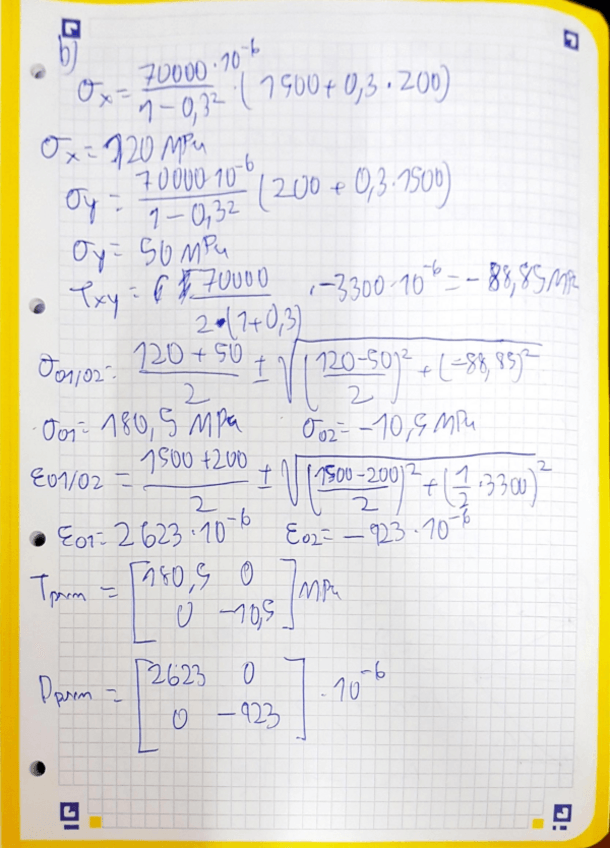 b)
σx = 70000·10^-6 / 1-0,3² · (1500 + 0,3 · 200)
σx = 120 MPa
σy = 70000·10^-6 / 1-0,3² (200 + 0,3·1500)
σy = 50 MPa
τxy = 70000 / 2·(1+0,3) · -3300·10^-6 = -88,85 MPa
σ01/02 = 120 + 50 / 2 ± √((120-50 / 2)² + (-88,85)²
σ01 = 180,5 MPa σ02 = -10,5 MPa
ε01/02 = 1500 + 200 / 2 ± √((1500-200 / 2)² + (1/2 · 3300)²
ε01 = 2623·10^-6 ε02 = -923·10^-6
Tprin = [180,5 0
0 -10,5] MPa
Dprin = [2623 0
0 -923] · 10^-6